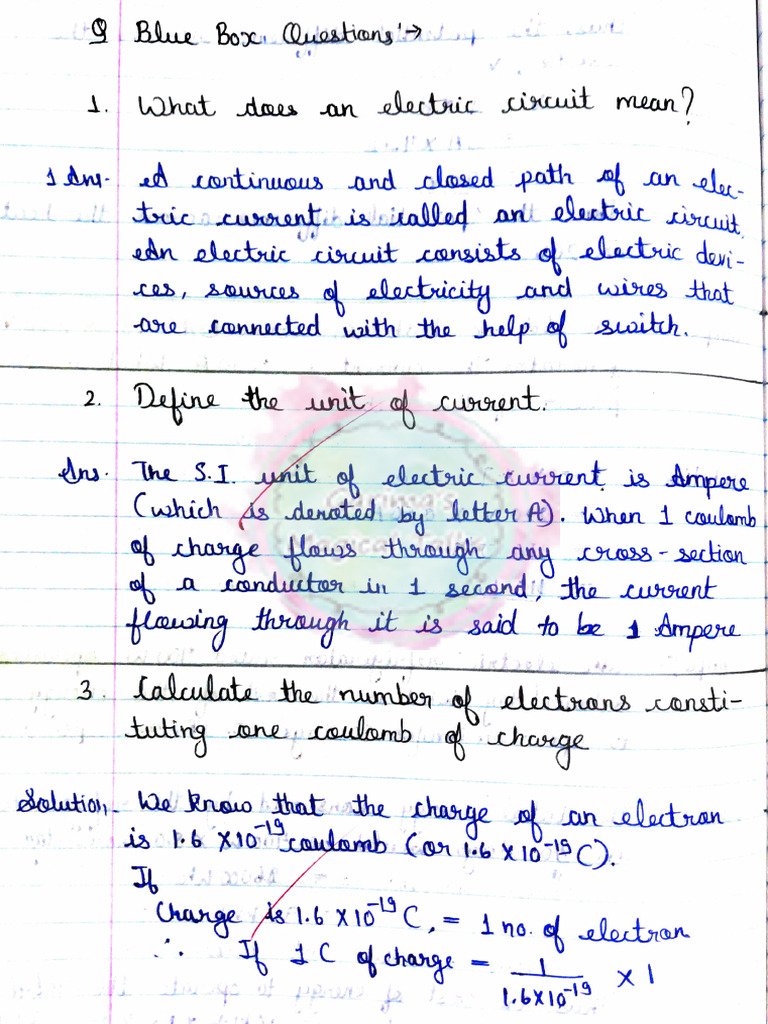 Q Blue Box Questions:→
1. What does an electric circuit mean?
1 Ans. A continuous and closed path of an elec-
tric current is called an electric circuit.
An electric circuit consists of electric devi-
ces, sources of electricity and wires that
are connected with the help of switch.
2. Define the unit of current.
Ans. The S.I. unit of electric current is Ampere
(which is denoted by letter A). When 1 coulomb
of charge flows through any cross-section
of a conductor in 1 second, the current
flowing through it is said to be 1 Ampere
3. Calculate the number of electrons consti-
tuting one coulomb of charge
Solution, We know that the charge of an electron
is 1.6 × 10⁻¹⁹ coulomb (or 1.6 × 10⁻¹⁹ C).
If
Charge is 1.6 × 10⁻¹⁹ C, = 1 no. of electron
∴ If 1 C of charge = 1/1.6×10⁻¹⁹ × 1